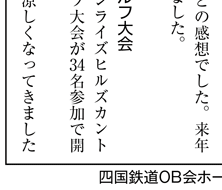 との感想でした。来年
ました。
ルフ大会
ンライズヒルズカント
フ大会が34名参加で開
涼しくなってきました
四国鉄道OB会ホー